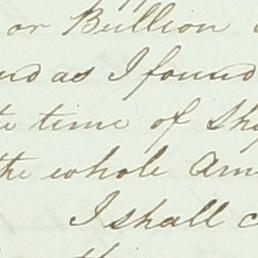 or Bullion
and as I found
time of
the whole
I shall